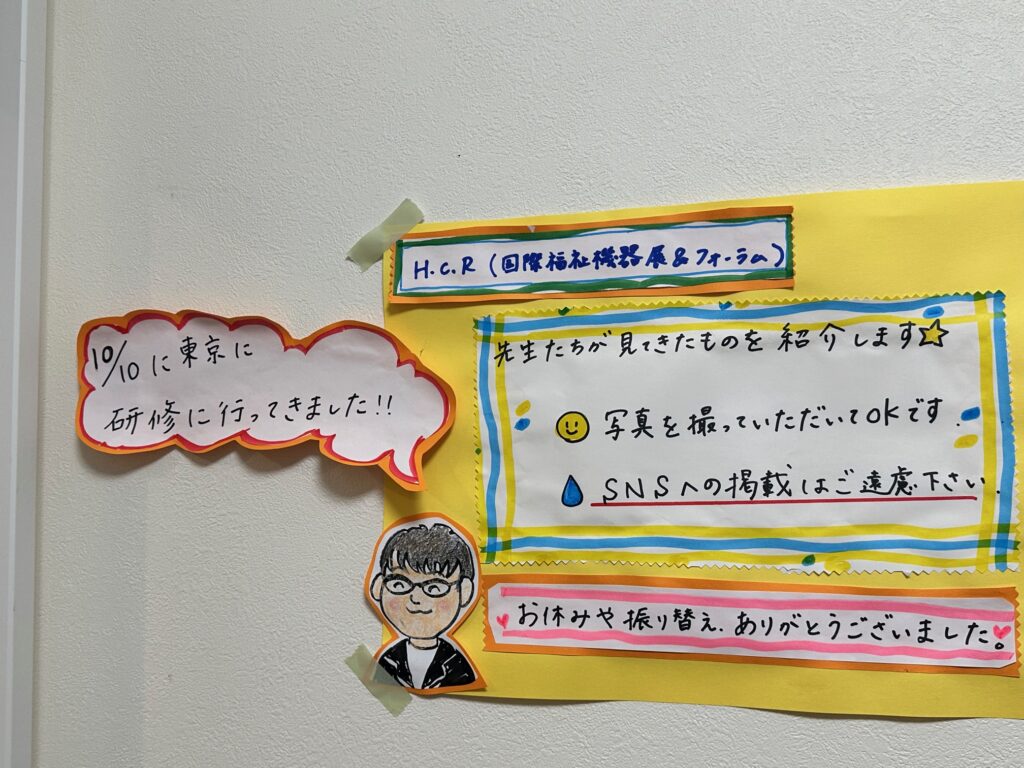 H.C.R (国際福祉機器展&フォーラム)
10/10に東京に
研修に行ってきました!!
先生たちが見てきたものを紹介します☆
写真を撮っていただいてOKです.
SNSへの掲載はご遠慮下さい.
お休みや振り替え、ありがとうございました。